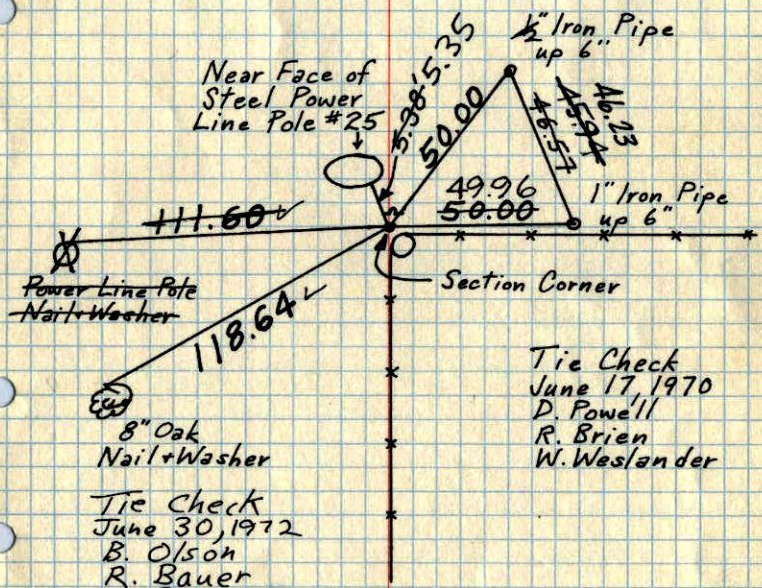 ½" Iron Pipe
up 6"
Near Face of
Steel Power
Line Pole #25
5.38'
5.35
50.00
46.57
45.94
46.23
49.96
50.00
1" Iron Pipe
up 6"
111.60 ✓
Power Line Pole
Nail+Washer
Section Corner
118.64 ✓
8" Oak
Nail+Washer
Tie Check
June 17, 1970
D. Powell
R. Brien
W. Weslander
Tie Check
June 30, 1972
B. Olson
R. Bauer